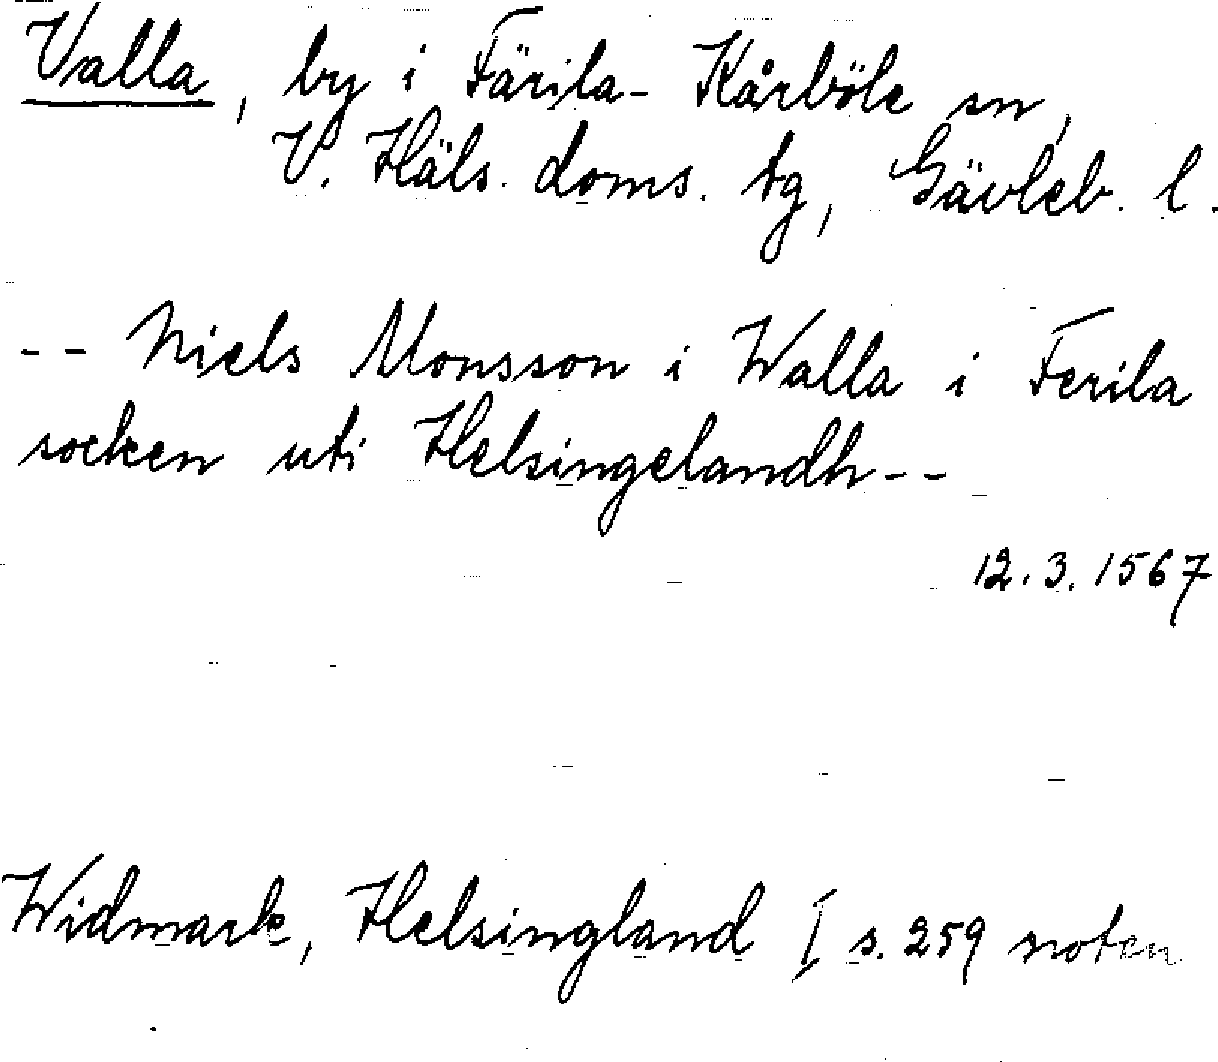 Valla, by i Färila-Kårböle sn,
V. Häls. doms. tg, Gävleb. l.
-- Niels Monsson i Walla i Ferila
socken uti Helsingelandh--
12.3.1567
Widmark, Helsingland I s. 259 noten